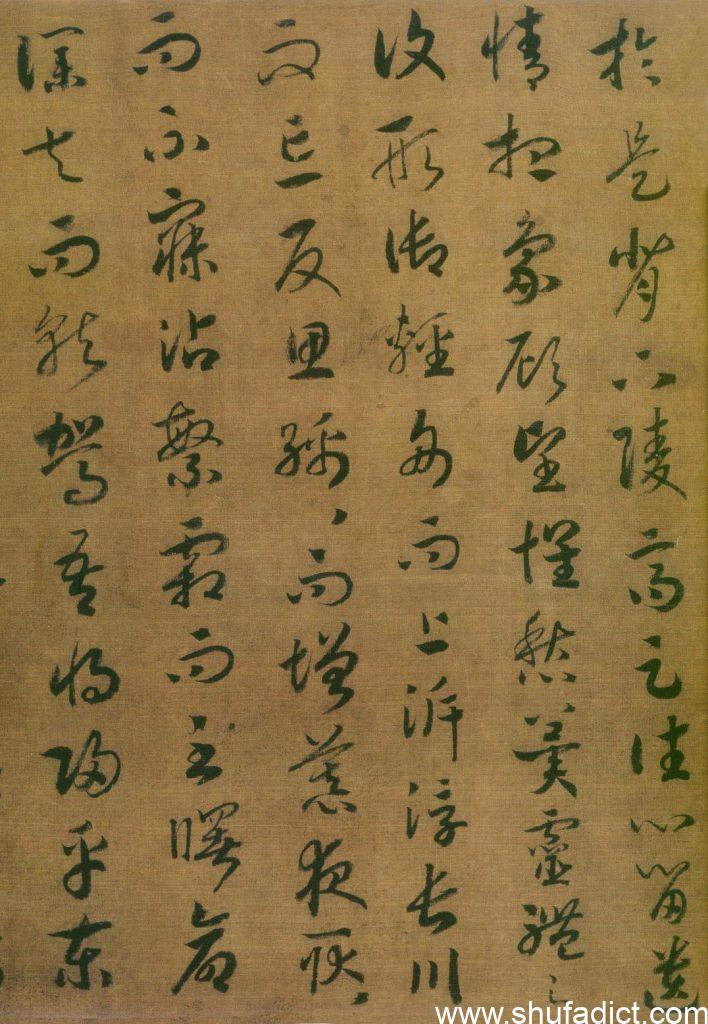 於是背下陵高足往心留遺
情想象顧望懷愁冀靈體之
復形御輕舟而上泝浮長川
而忘反思綿、而增慕夜耿、
而不寐沾繁霜而至曙命
僕夫而就駕吾將歸乎東
www.shufadict.com